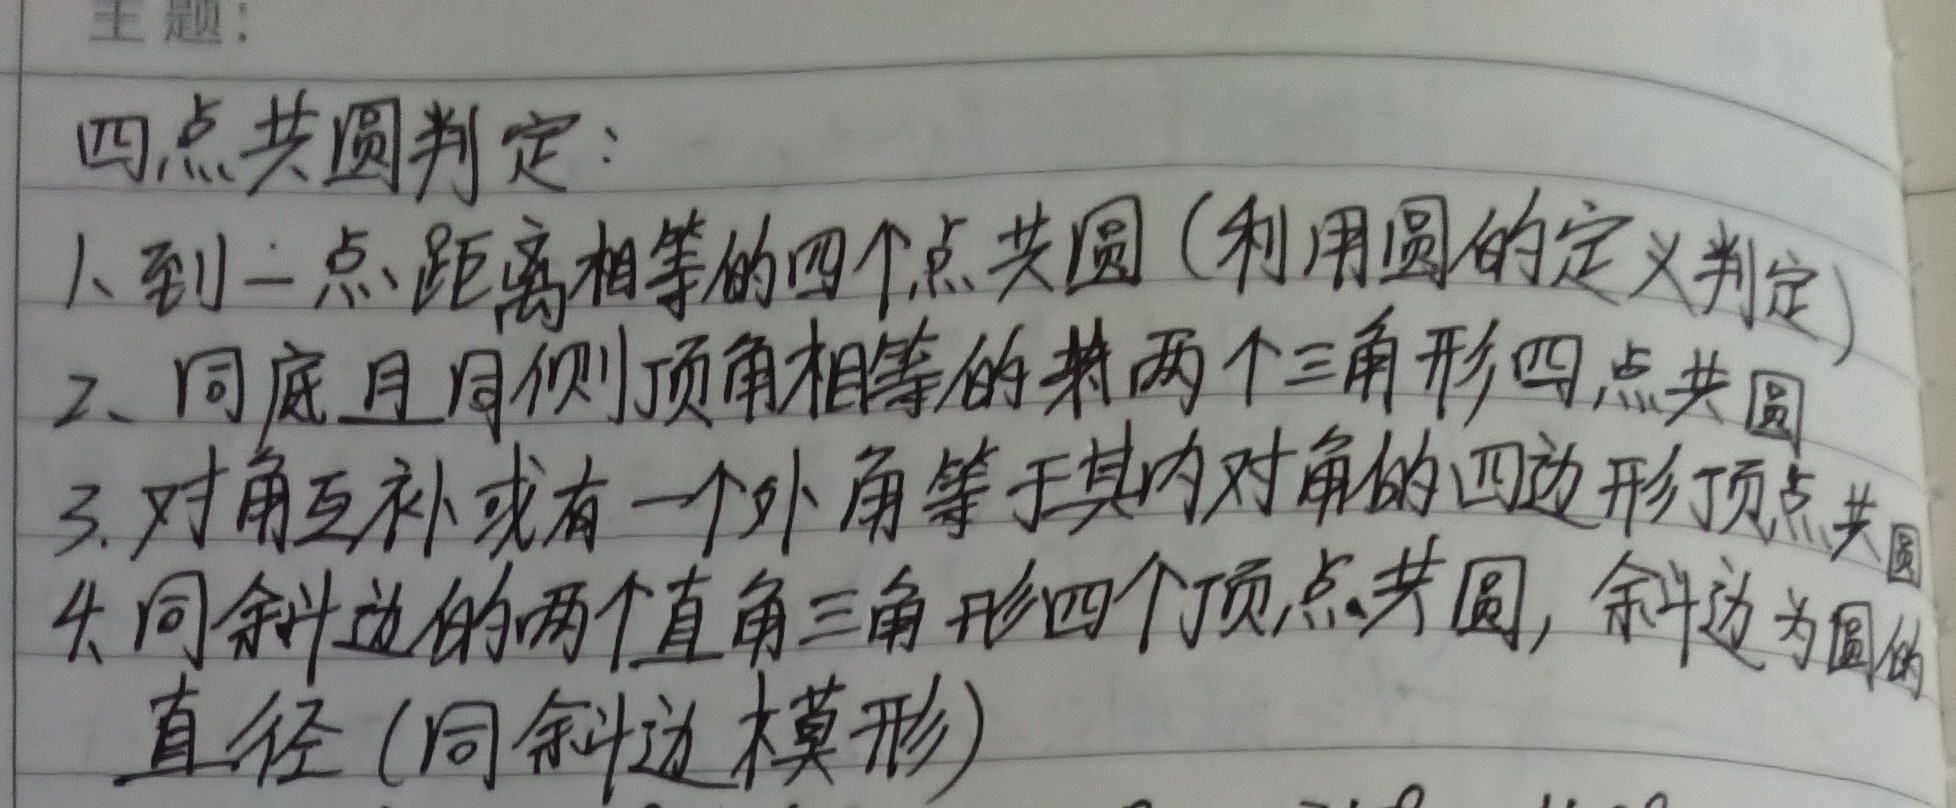 主题：
四点共圆判定：
1、到一点距离相等的四个点共圆（利用圆的定义判定）
2、同底且同侧顶角相等的两个三角形四点共圆
3.对角互补或有一个外角等于其内对角的四边形顶点共圆
4、同斜边的两个直角三角形四个顶点共圆，斜边为圆的
直径（同斜边模形）